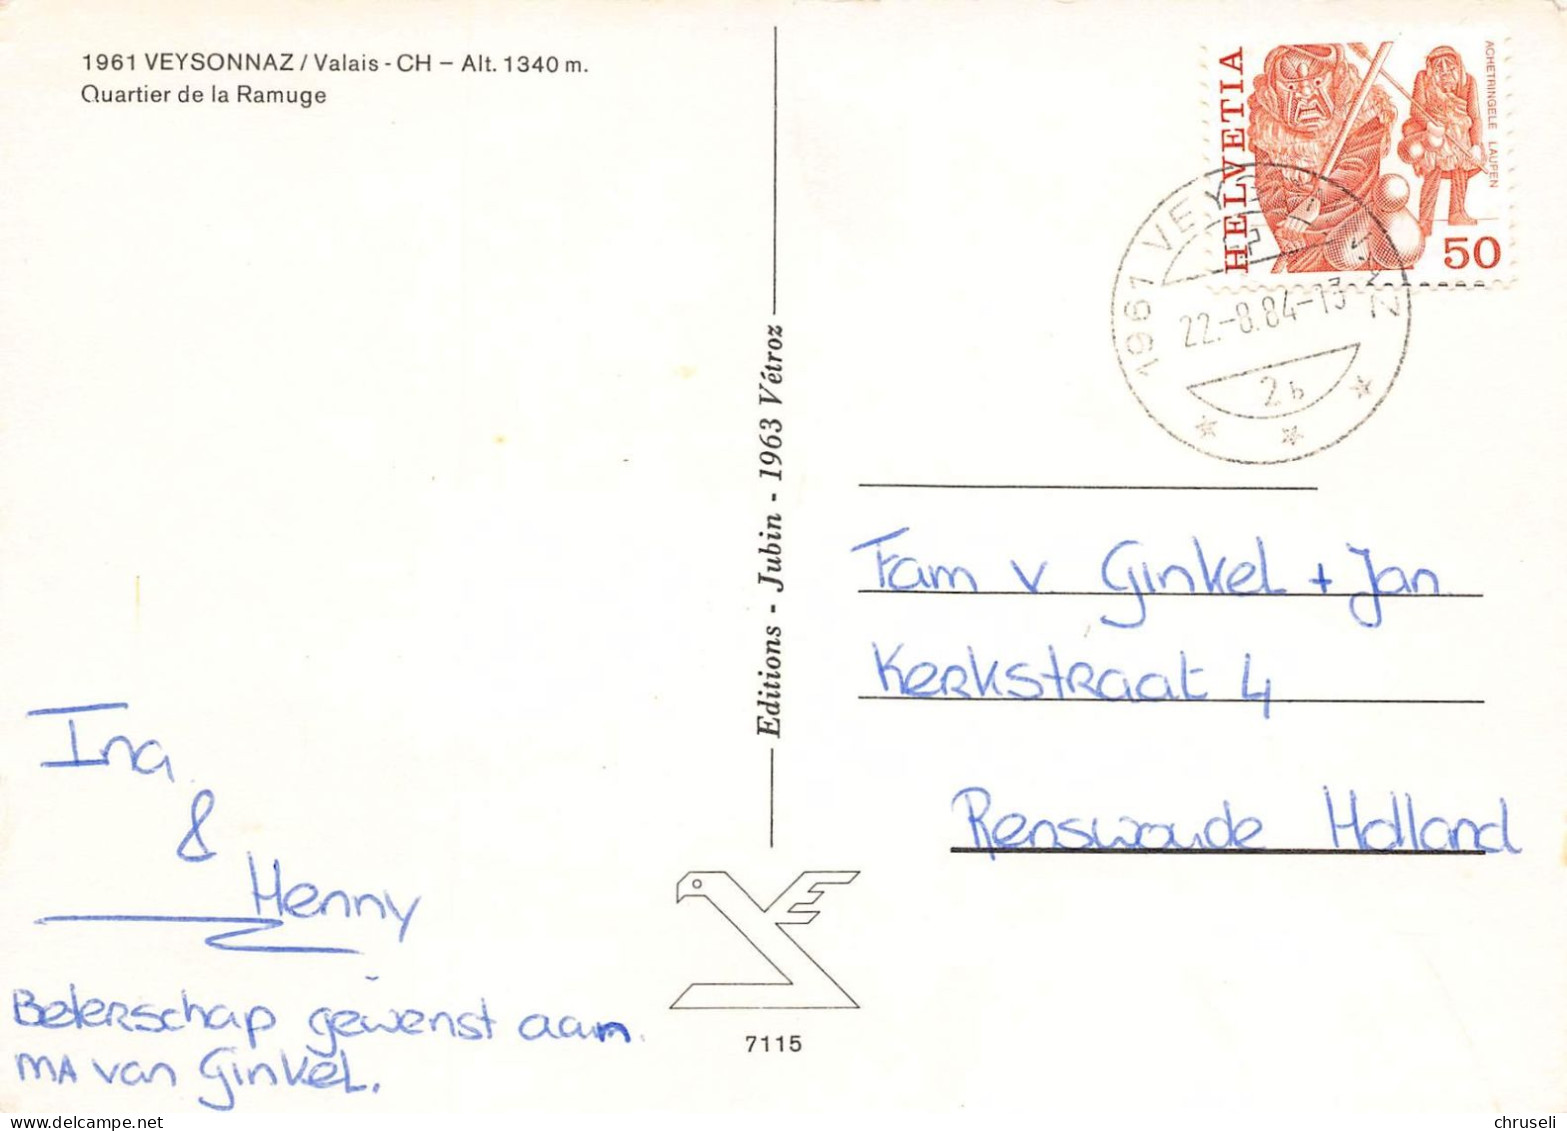 1961 VEYSONNAZ / Valais - CH – Alt. 1340 m.
Quartier de la Ramuge
HELVETIA
ACHETRINGELE LAUPEN
50
1961 VEYSONNAZ
22.-8.84-13
2b
Editions - Jubin - 1963 Vétroz
Fam v Ginkel + Jan
Kerkstraat 4
Renswoude Holland
Ina
&
Henny
Beterschap gewenst aan
MA van Ginkel.
7115
chruseli